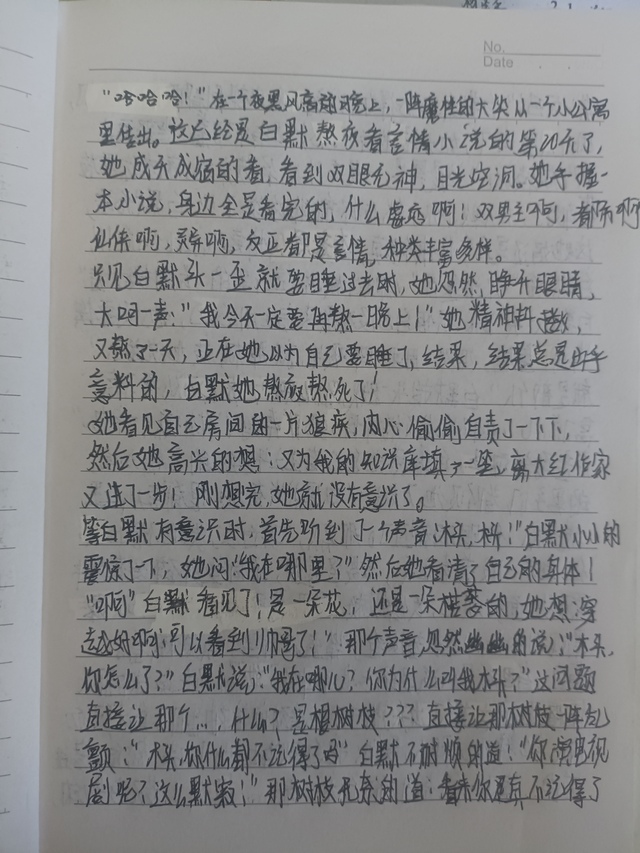 No.
Date
“哈哈哈！”在一个夜黑风高的晚上，一阵魔性的大笑从一个小公寓
里传出。这已经是白默熬夜看言情小说的第20天了，
她成天成宿的看，看到双眼无神，目光空洞。她手握一
本小说，身边全是看完的，什么虐恋啊！双男主啊，都市啊
仙侠啊，灵异啊，反正都是言情，种类丰富多样。
只见白默头一歪就要睡过去时，她忽然睁开眼睛，
大呵一声：“我今天一定要再熬一晚上！”她精神抖擞，
又熬了一天，正在她以为自己要睡了，结果，结果总是出乎
意料的，白默她熬夜熬死了！
她看见自己房间的一片狼疾，内心偷偷自责了一下下，
然后她高兴的想：又为我的知识库填了一笔，离大红作家
又进了一步！刚想完，她就没有意识了。
等白默有意识时，首先听到了个声音：木头，木头！”白默小小的
震惊了一下，她问“我在哪里？”然后她看清了自己的身体！
“啊”白默看见了！是一朵花，还是一朵枯萎的，她想：穿
越好啊，可以看到帅哥了！”那个声音忽然幽幽的说：“木头，
你怎么了？”白默说：“我在哪儿？你为什么叫我木头？”这问题
直接让那个...，什么？是根树枝？？？直接让那树枝一阵
颤：“木头，你什么都不记得了吗”白默不耐烦的道：“你演电视
剧呢？这么默寂！”那树枝无奈的道：看来你是真不记得了